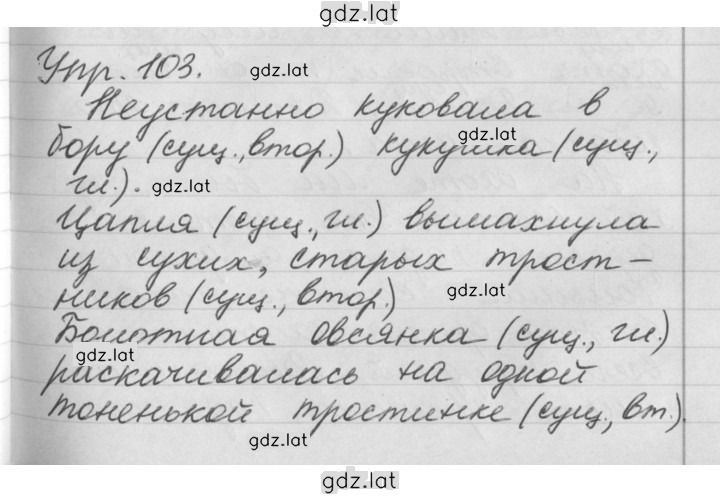 gdz.lat
Упр. 103.
gdz.lat
Неустанно куковала в
gdz.lat
бору (сущ., втор.) кукушка (сущ.,
гл.).
gdz.lat
Цапля (сущ., гл.) вымахнула
из сухих, старых трост-
gdz.lat
ников (сущ., втор.)
Болотная овсянка (сущ., гл.)
gdz.lat
раскачивалась на одной
тоненькой тростинке (сущ., вт.).
gdz.lat
gdz.lat